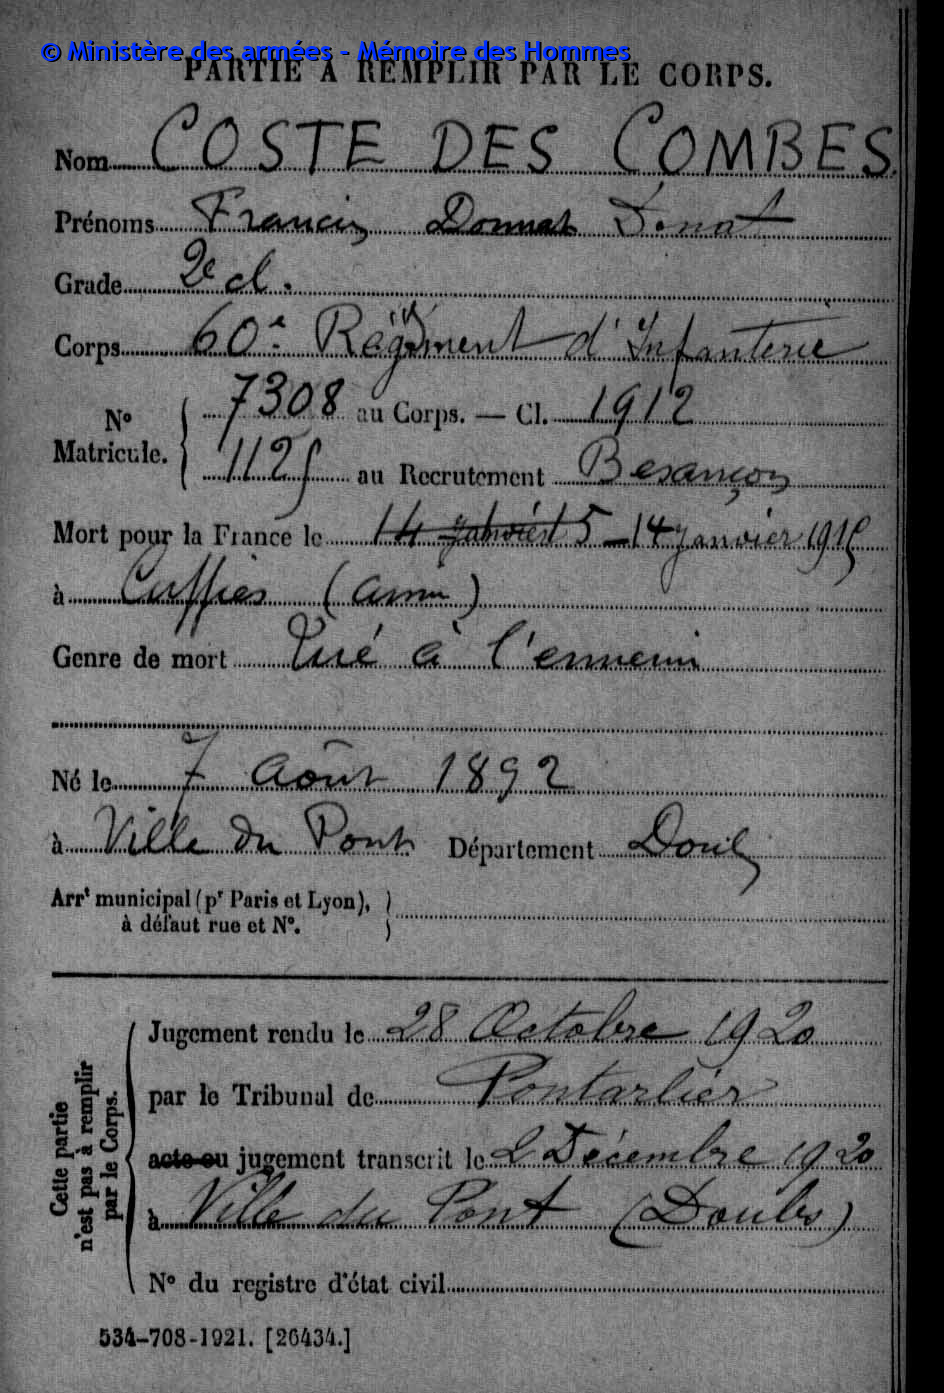 © Ministère des armées - Mémoire des Hommes
PARTIE A REMPLIR PAR LE CORPS.
Nom COSTE DES COMBES
Prénoms Francis Donnat Donat
Grade 2e cl.
Corps 60e Régiment d'Infanterie
N° Matricule. { 7308 au Corps. — Cl. 1912
1125 au Recrutement Besançon
Mort pour la France le 14 Janvier 15 - 14 janvier 1915
à Cuffies (Aisne)
Genre de mort Tué à l'ennemi
Né le 7 Août 1892
à Ville du Pont Département Doubs
Arrt municipal (pr Paris et Lyon), }
à défaut rue et N°.
Cette partie
n'est pas à remplir
par le Corps.
Jugement rendu le 28 Octobre 1920
par le Tribunal de Pontarlier
acte ou jugement transcrit le 2 Décembre 1920
à Ville du Pont (Doubs)
N° du registre d'état civil
534-708-1921. [26434.]